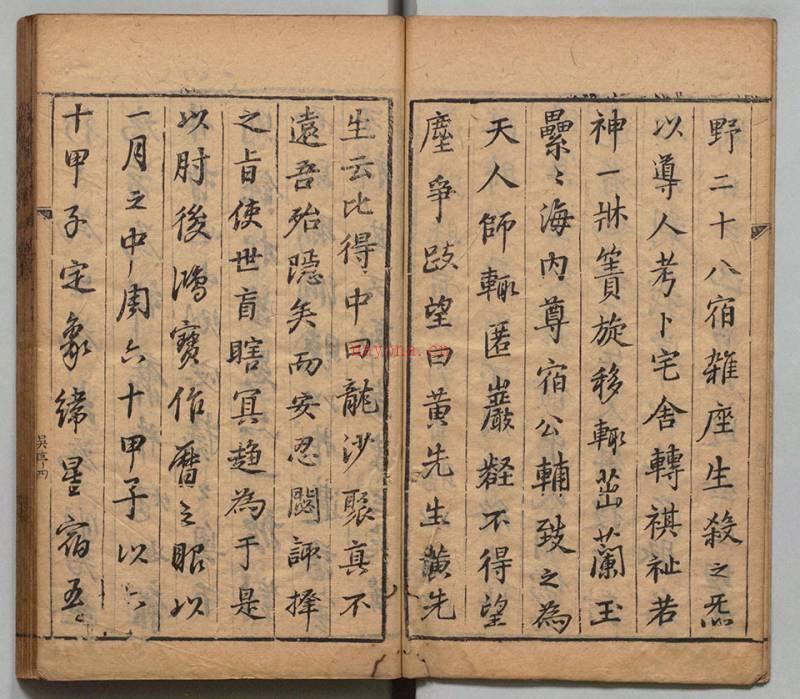 野二十八宿雜座生殺之炁
以導人考卜宅舍轉祺祉若
神一牀簀旋移輙茁蘭玉
纍〻海內尊宿公輔致之為
天人師輙匿巖嵀不得望
塵爭跂望曰黃先生黃先
生云比得中曰龍沙聚真不
遠吾殆隱矣而安忍閟諏擇
之旨使世盲瞎冥趋為于是
以肘後鴻寶作曆之眼以
一月之中周六十甲子以六
十甲子定象緯星宿五〻
吳序四
nayona.cn